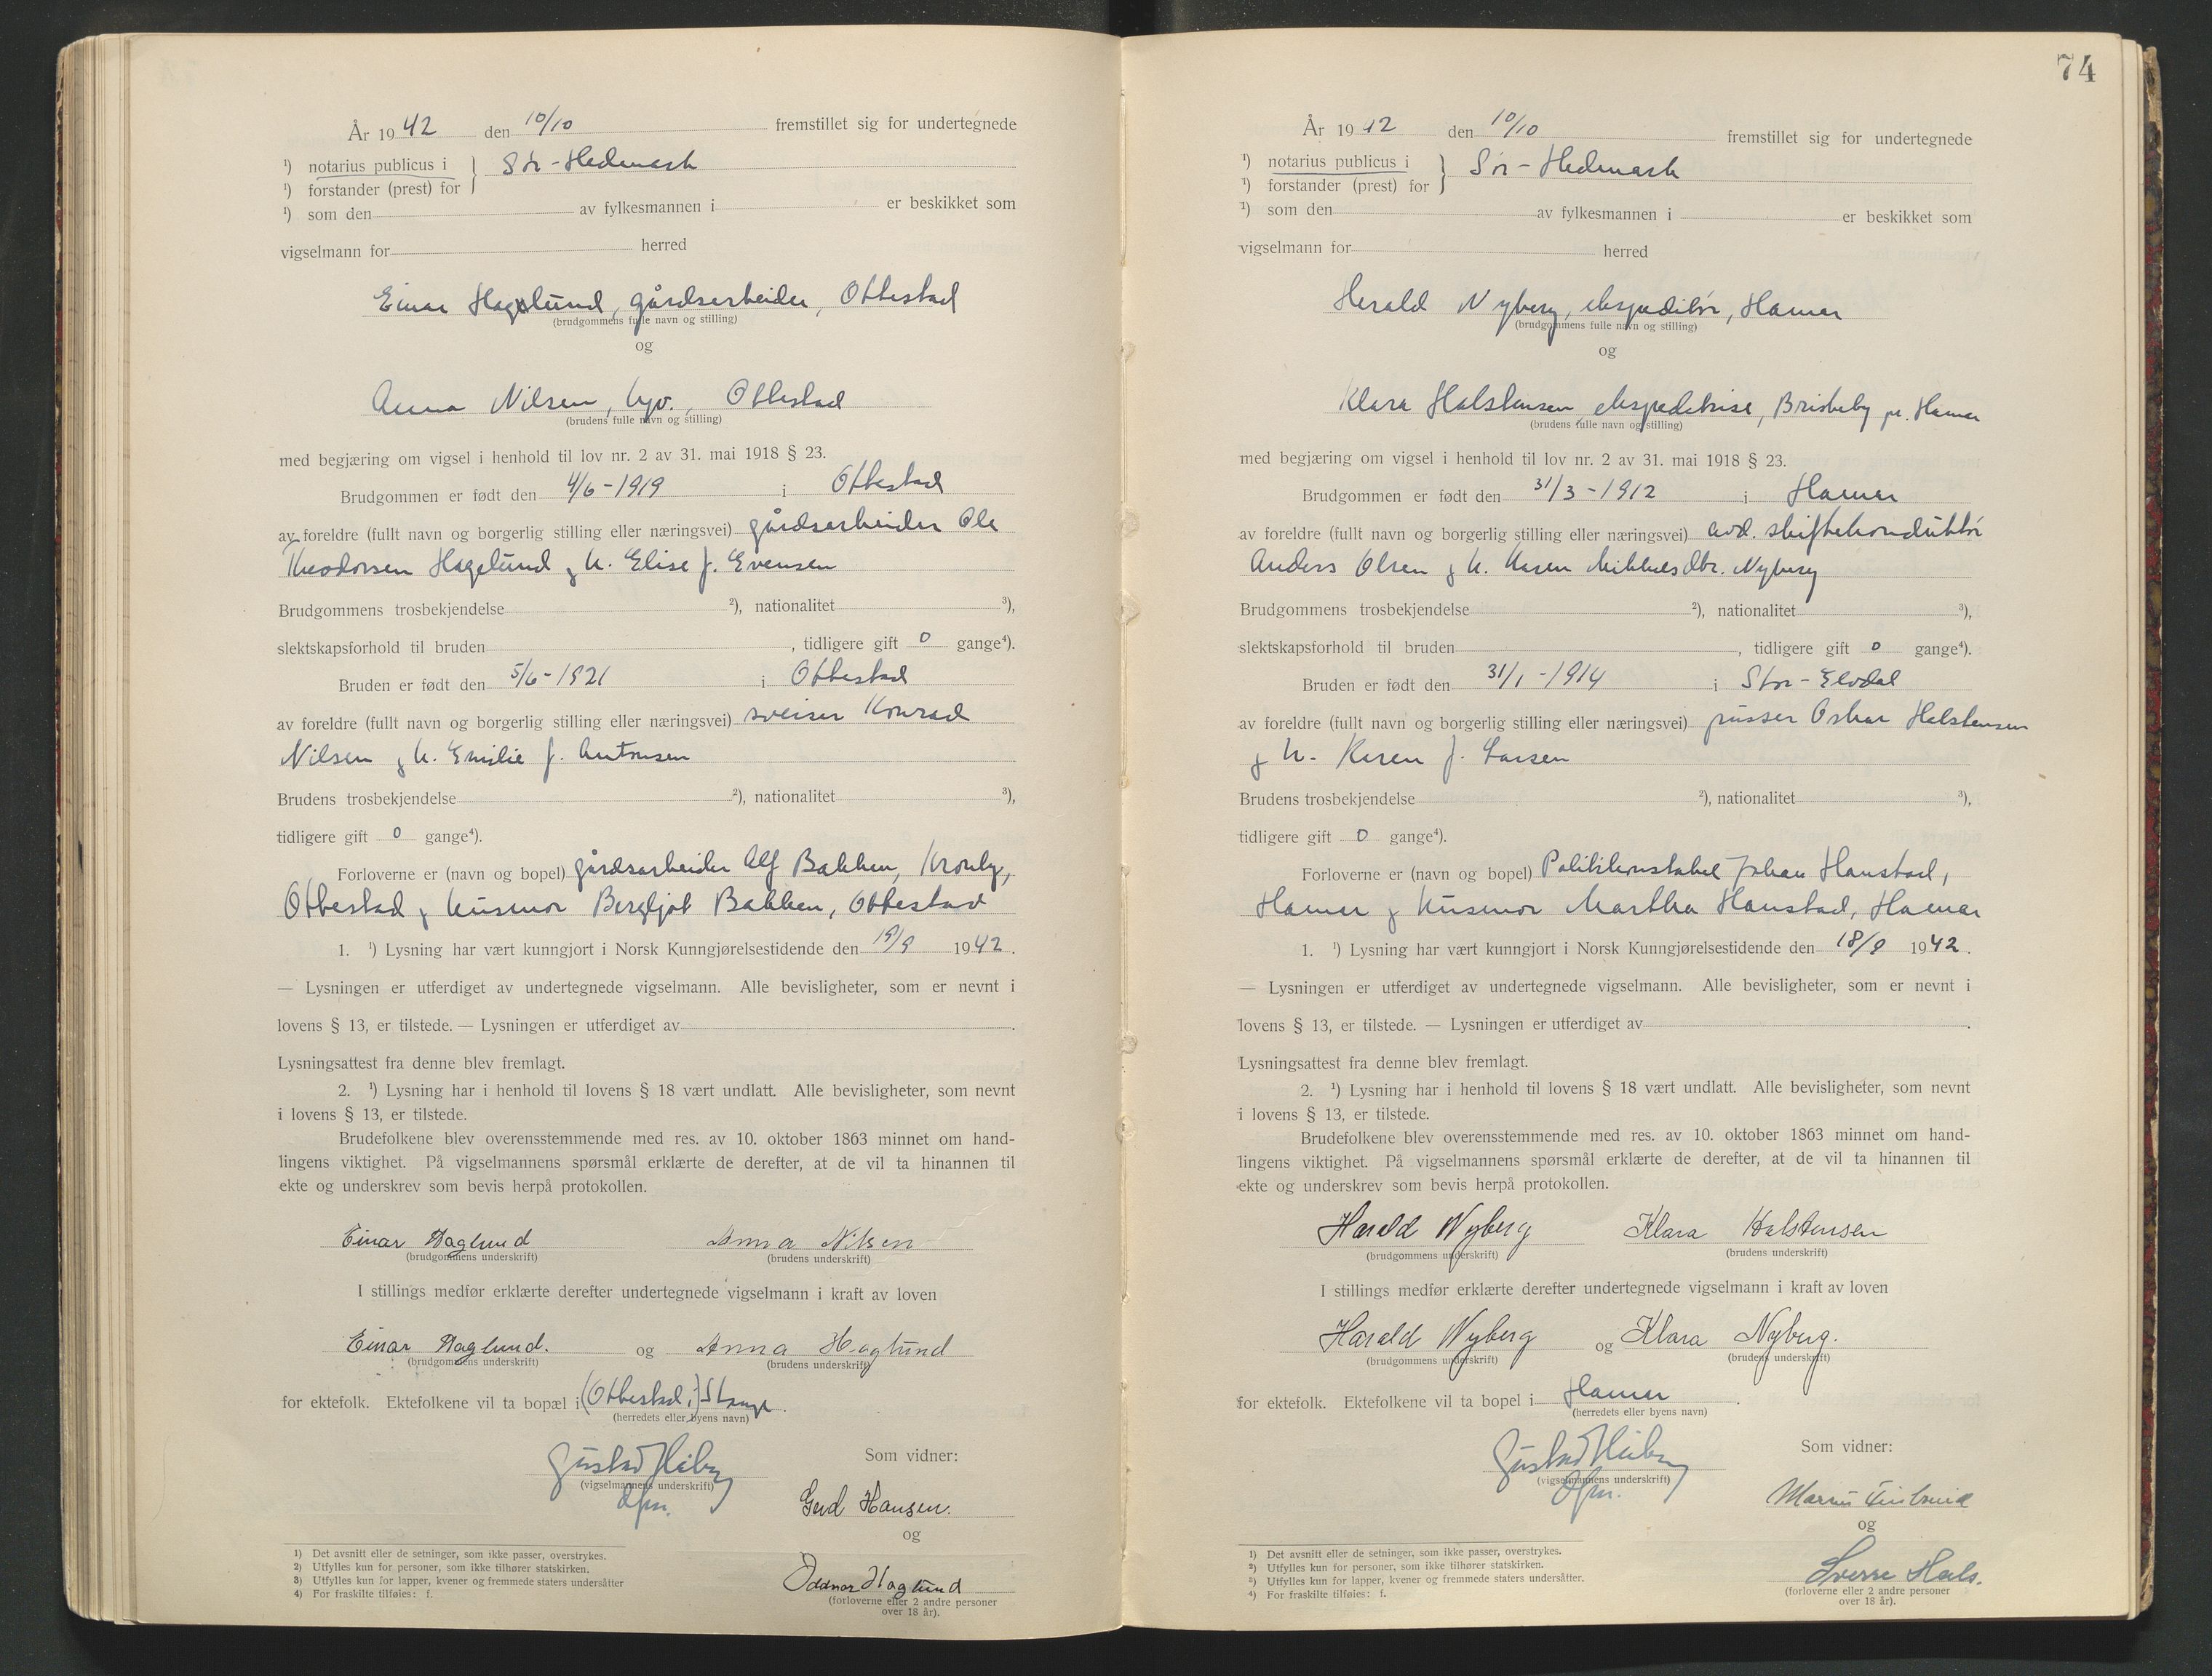 År 1942 den 10/10 fremstillet sig for undertegnede
¹) notarius publicus i } Sør-Hedmark
¹) forstander (prest) for
¹) som den av fylkesmannen i er beskikket som
vigselmann for herred
Einar Haglund, gårdsarbeider, Ottestad
(brudgommens fulle navn og stilling)
og
Anna Nilsen, hjv., Ottestad
(brudens fulle navn og stilling)
med begjæring om vigsel i henhold til lov nr. 2 av 31. mai 1918 § 23.
Brudgommen er født den 4/6-1919 i Ottestad
av foreldre (fullt navn og borgerlig stilling eller næringsvei) gårdsarbeider Ole
Theodorsen Hagelund & h. Elise f. Evensen
Brudgommens trosbekjendelse ²), nationalitet ³),
slektskapsforhold til bruden , tidligere gift 0 gange⁴).
Bruden er født den 5/6-1921 i Ottestad
av foreldre (fullt navn og borgerlig stilling eller næringsvei) sveiser Konrad
Nilsen & h. Emilie f. Antonsen
Brudens trosbekjendelse ²), nationalitet ³),
tidligere gift 0 gange⁴).
Forloverne er (navn og bopel) gårdsarbeider Alf Bakken, Kronby,
Ottestad & husmor Bergljot Bakken, Ottestad
1. ¹) Lysning har vært kunngjort i Norsk Kunngjørelsestidende den 19/9 1942.
— Lysningen er utferdiget av undertegnede vigselmann. Alle bevisligheter, som er nevnt i
lovens § 13, er tilstede. — Lysningen er utferdiget av .
Lysningsattest fra denne blev fremlagt.
2. ¹) Lysning har i henhold til lovens § 18 vært undlatt. Alle bevisligheter, som nevnt
i lovens § 13, er tilstede.
Brudefolkene blev overensstemmende med res. av 10. oktober 1863 minnet om hand-
lingens viktighet. På vigselmannens spørsmål erklærte de derefter, at de vil ta hinannen til
ekte og underskrev som bevis herpå protokollen.
Einar Haglund Anna Nilsen
(brudgommens underskrift) (brudens underskrift)
I stillings medfør erklærte derefter undertegnede vigselmann i kraft av loven
Einar Haglund. og Anna Haglund
(brudgommens underskrift) (brudens underskrift)
for ektefolk. Ektefolkene vil ta bopæl i (Ottestad i) Stange.
(herredets eller byens navn)
Gustav Heiberg
Som vidner:
(vigselmannens underskrift)
Dfm.
Gerd Hansen.
og
Oddvar Haglund
(forloverne eller 2 andre personer
over 18 år).
1) Det avsnitt eller de setninger, som ikke passer, overstrykes.
2) Utfylles kun for personer, som ikke tilhører statskirken.
3) Utfylles kun for lapper, kvener og fremmede staters undersåtter
4) For fraskilte tilføies: f.
74
År 1942 den 10/10 fremstillet sig for undertegnede
¹) notarius publicus i } Sør-Hedmark
¹) forstander (prest) for
¹) som den av fylkesmannen i er beskikket som
vigselmann for herred
Harald Nyberg, ekspeditør, Hamar
(brudgommens fulle navn og stilling)
og
Klara Halstensen, ekspeditrise, Briskeby pr. Hamar
(brudens fulle navn og stilling)
med begjæring om vigsel i henhold til lov nr. 2 av 31. mai 1918 § 23.
Brudgommen er født den 31/3-1912 i Hamar
av foreldre (fullt navn og borgerlig stilling eller næringsvei) avd. skiftekonduktør
Anders Olsen & h. Karen Mikkelsdtr. Nyberg
Brudgommens trosbekjendelse ²), nationalitet ³),
slektskapsforhold til bruden , tidligere gift 0 gange⁴).
Bruden er født den 31/1-1914 i Stor-Elvdal
av foreldre (fullt navn og borgerlig stilling eller næringsvei) pusser Oskar Halstensen
& h. Karen f. Larsen
Brudens trosbekjendelse ²), nationalitet ³),
tidligere gift 0 gange⁴).
Forloverne er (navn og bopel) Politikonstabel Johan Hanstad,
Hamar & husmor Martha Hanstad, Hamar
1. ¹) Lysning har vært kunngjort i Norsk Kunngjørelsestidende den 18/9 1942.
— Lysningen er utferdiget av undertegnede vigselmann. Alle bevisligheter, som er nevnt i
lovens § 13, er tilstede. — Lysningen er utferdiget av .
Lysningsattest fra denne blev fremlagt.
2. ¹) Lysning har i henhold til lovens § 18 vært undlatt. Alle bevisligheter, som nevnt
i lovens § 13, er tilstede.
Brudefolkene blev overensstemmende med res. av 10. oktober 1863 minnet om hand-
lingens viktighet. På vigselmannens spørsmål erklærte de derefter, at de vil ta hinannen til
ekte og underskrev som bevis herpå protokollen.
Harald Nyberg Klara Halstensen
(brudgommens underskrift) (brudens underskrift)
I stillings medfør erklærte derefter undertegnede vigselmann i kraft av loven
Harald Nyberg og Klara Nyberg.
(brudgommens underskrift) (brudens underskrift)
for ektefolk. Ektefolkene vil ta bopel i Hamar .
(herredets eller byens navn)
Gustav Heiberg
Som vidner:
(vigselmannens underskrift)
Dfm.
og
Sverre Hals.
(forloverne eller 2 andre personer
over 18 år).
1) Det avsnitt eller de setninger, som ikke passer, overstrykes.
2) Utfylles kun for personer, som ikke tilhører statskirken.
3) Utfylles kun for lapper, kvener og fremmede staters undersåtter.
4) For fraskilte tilføies: f.